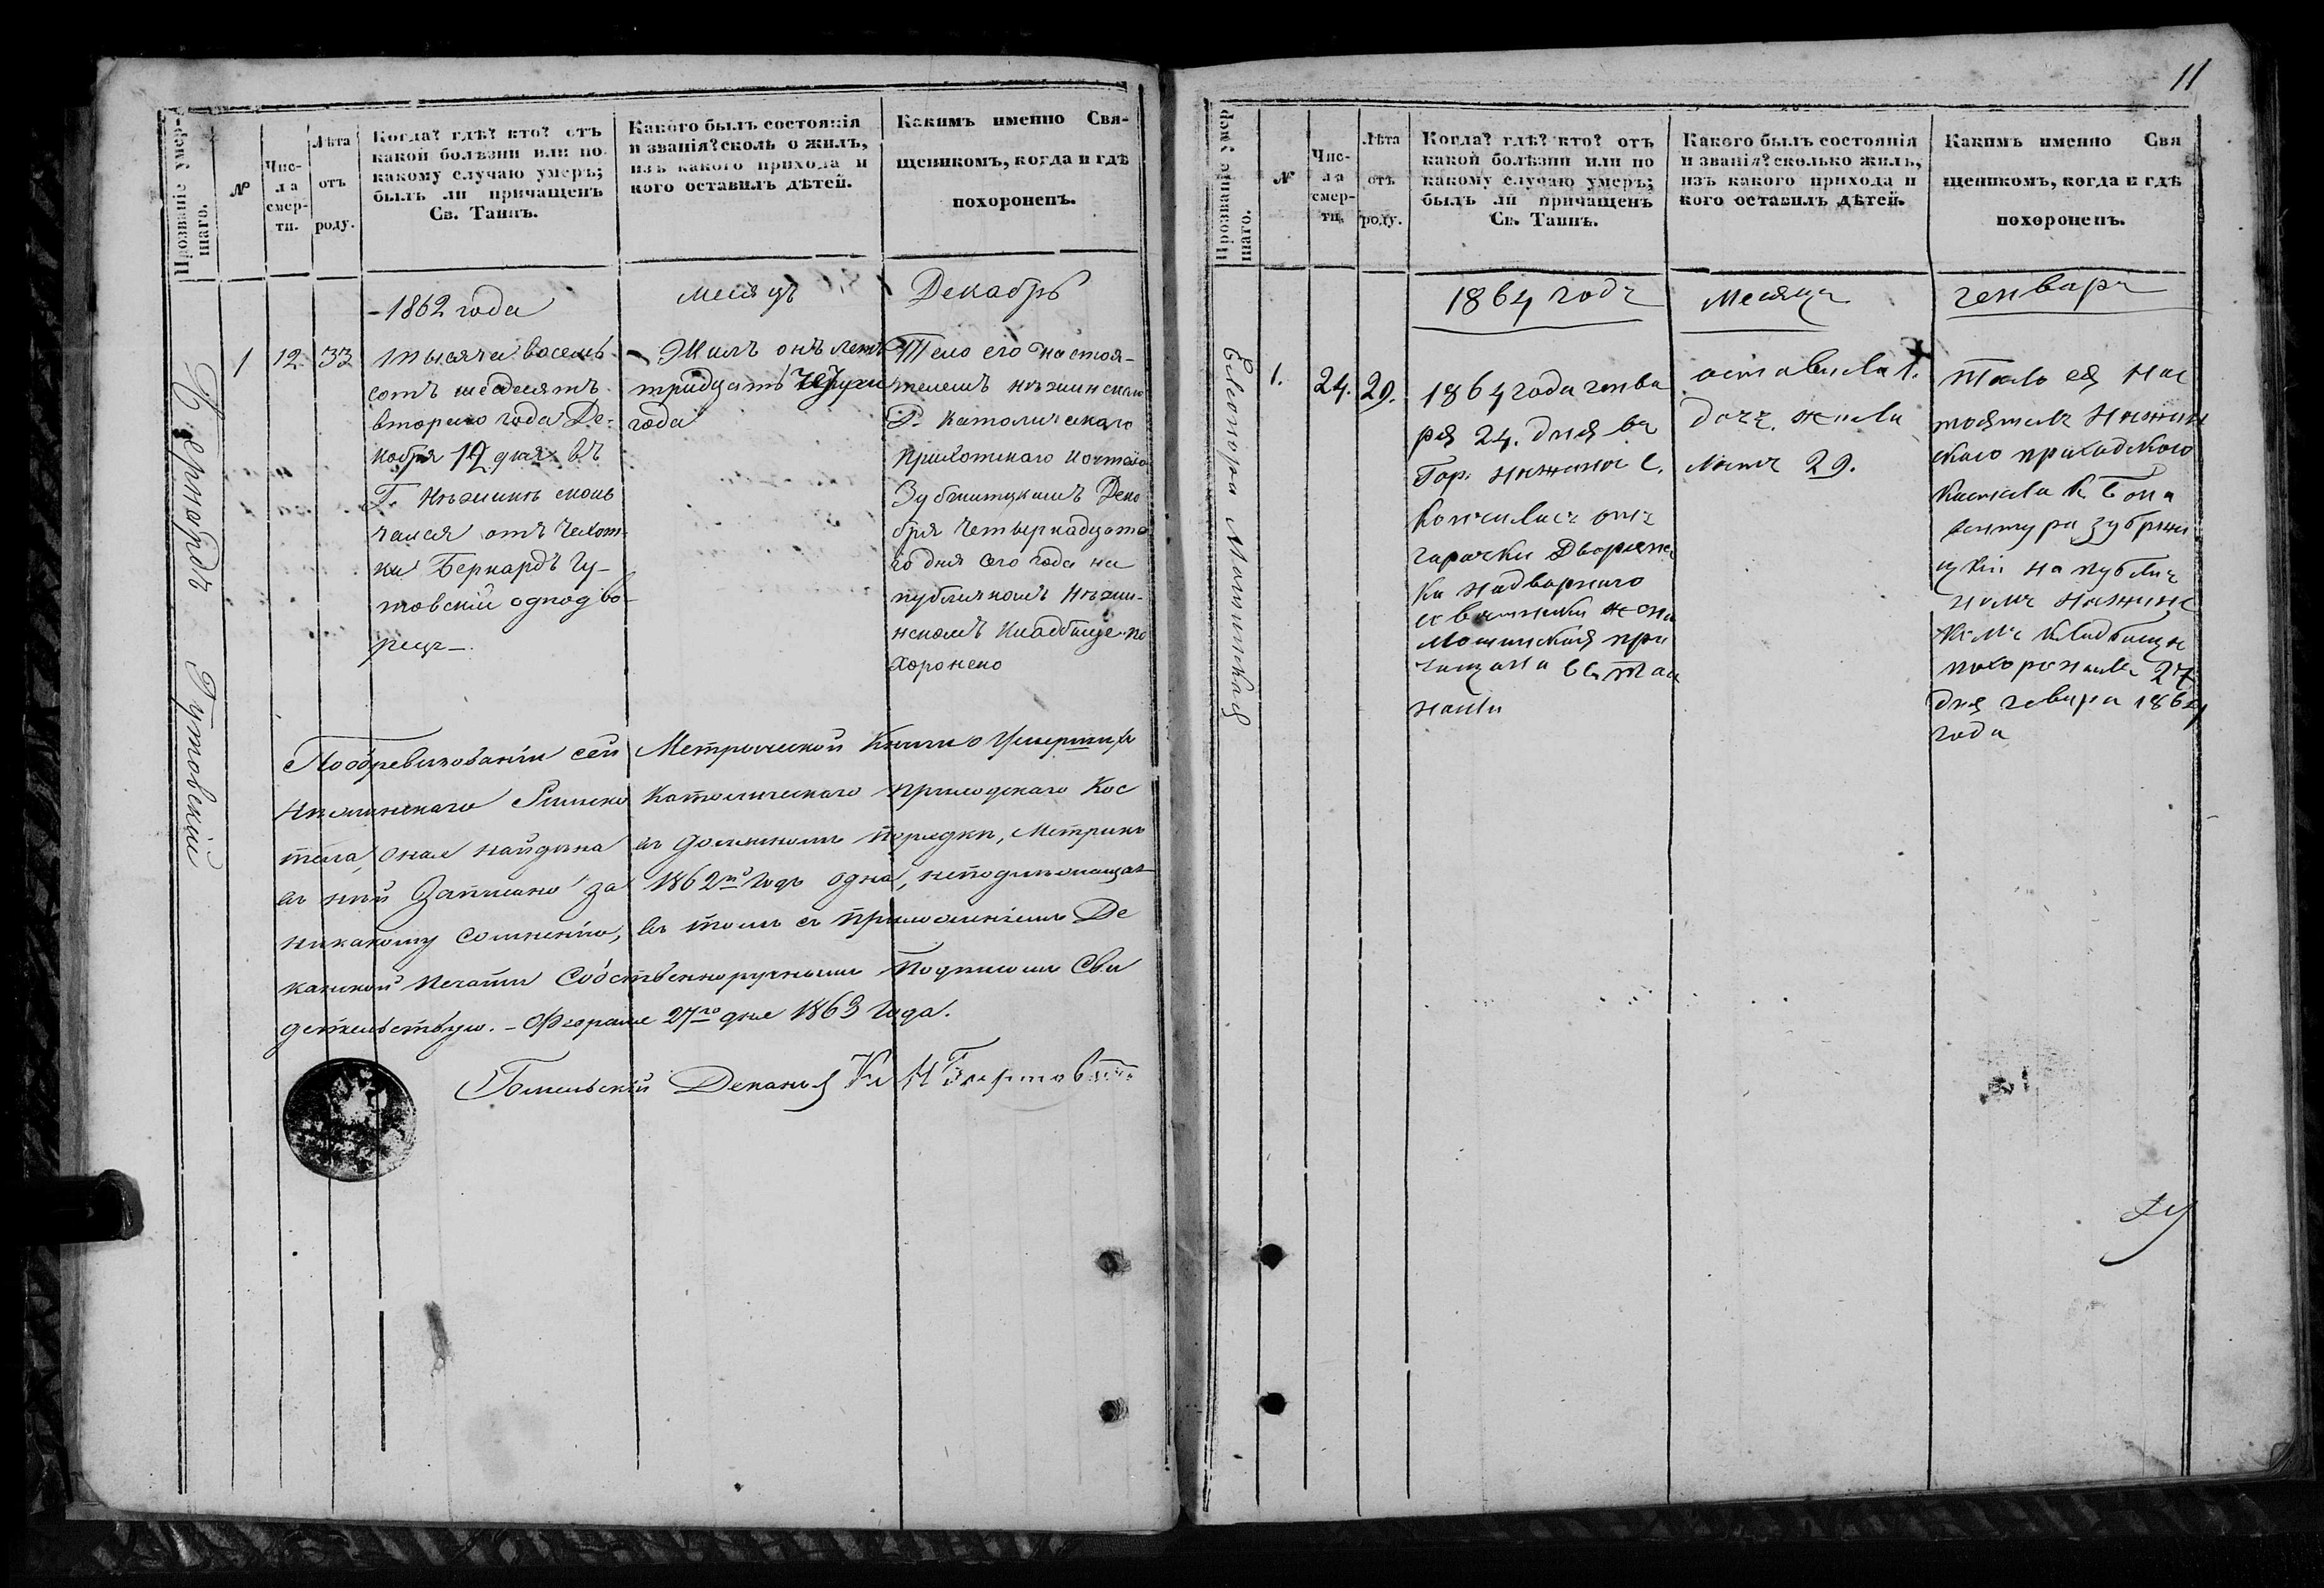 Прозваніе умер-
шаго.
№
Чис-
ла
смер-
ти.
Лѣта
отъ
роду.
Когда? гдѣ? кто? отъ
какой болѣзни или по
какому случаю умеръ;
былъ ли причащенъ
Св. Таинъ.
Какого былъ состоянія
и званія? сколь о жилъ,
изъ какого прихода и
кого оставилъ дѣтей.
Какимъ именно Свя-
щеникомъ, когда и гдѣ
похороненъ.
1862 года
месяцъ
Декабрь
Бернардъ Гутовскій
1
12
33
тысяча восемь
сотъ шесдесятъ
второго года Де-
кабря 12 дня въ
Г. Нѣжинѣ скон
чался отъ чехот-
ки Бернардъ Гу-
товскій однодво-
рецъ
Жилъ онъ летъ
тридцать
года
Тело его настоя-
телемъ нѣжинскаго
Р. Католическаго
Прихотскаго костела
Зубжицкимъ Дека
бря четвернадцата
го дня сего года на
публичномъ Нѣжи-
нскомъ кладбище по
хоронено
По обревизованіи сей Метрической Книги о Умершихъ
Нѣжинскаго Римско Католическаго Приходскаго Кос
тела, оная найдена въ должномъ порядкѣ, Метрикъ
въ ней Записано за 1862й годъ одна, неподлежащая
никакому сомненію, въ томъ съ приложеніемъ Де
канской печати Собственноручнымъ Подписомъ Сви
детельствую. - Февраля 27го дня 1863 Года.
Гомельскій Деканъ
11
Прозваніе умер-
шаго.
№
Чис-
ла
смер-
ти.
Лѣта
отъ
роду.
Когда? гдѣ? кто? отъ
какой болѣзни или по
какому случаю умеръ;
былъ ли причащенъ
Св. Таинъ.
Какого былъ состоянія
и званія? сколько жилъ,
изъ какого прихода и
кого оставилъ дѣтей.
Какимъ именно Свя
щеникомъ, когда и гдѣ
похороненъ.
1864 годъ
месяцъ
генварь
Елеонора Мошинская
1.
24.
29.
1864 года генва
ря 24. дня въ
Гор. Нежине с.
кончилась отъ
гарачки Дворянка
надворнаго
советника жена
Мошинская при
чащана св. тай
нами
оставила 1.
дочъ. жила
летъ 29.
Тело ея нас
тоятель Нежин
скаго приходского
костела К. Бона
вентура Зубржи
цкій на публич
номъ Нежинс
комъ кладбище
похоронилъ 27
дня генваря 1864
года